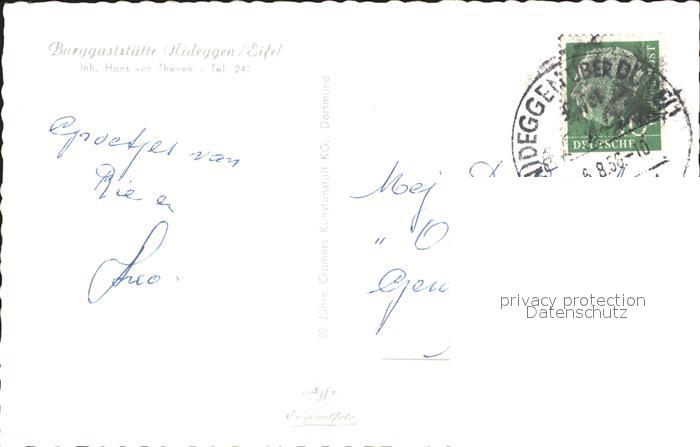 Burggaststätte Nideggen/Eifel
Inh. Hans von Thenen / Tel. 247
Groetjes van
Rie en
50 Jahre Cramers Kunstanstalt KG., Dortmund
Originalfoto
NIDEGGEN ÜBER DÜREN
DEUTSCHE
POST
6.8.56-10
Mej
" O
Gen
privacy protection
Datenschutz